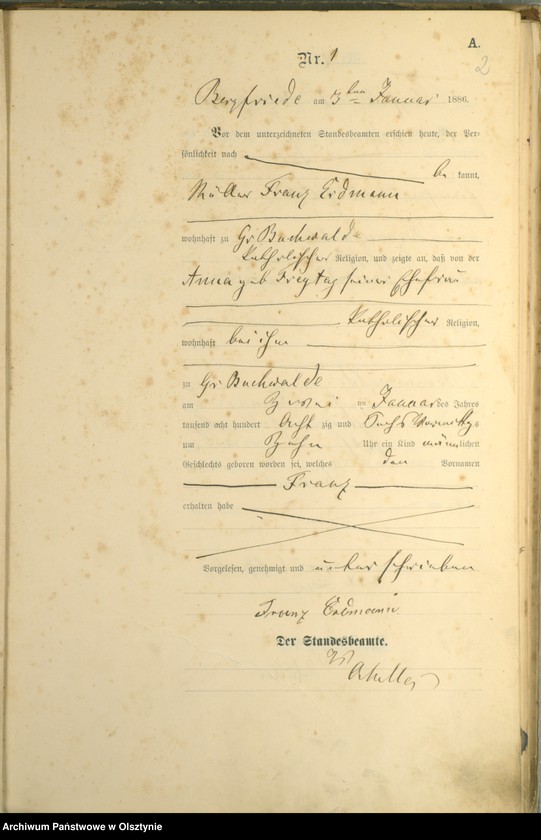 A.
2
Nr. 1
Bergfriede am 3ten Januar 1886.
Vor dem unterzeichneten Standesbeamten erschien heute, der Per-
sönlichkeit nach
be kannt,
Müller Franz Erdmann
wohnhaft zu Gr Buchwalde
katholischer Religion, und zeigte an, daß von der
Anna geb Freytag seiner Ehefrau
katholischer Religion,
wohnhaft bei ihm
zu Gr Buchwalde
am Zwei ten Januar des Jahres
tausend acht hundert Acht zig und Sechs Vormittags
um Zehn Uhr ein Kind männlichen
Geschlechts geboren worden sei, welches den Vornamen
Franz
erhalten habe
Vorgelesen, genehmigt und unterschrieben
Franz Erdmann
Der Standesbeamte.
Archiwum Państwowe w Olsztynie